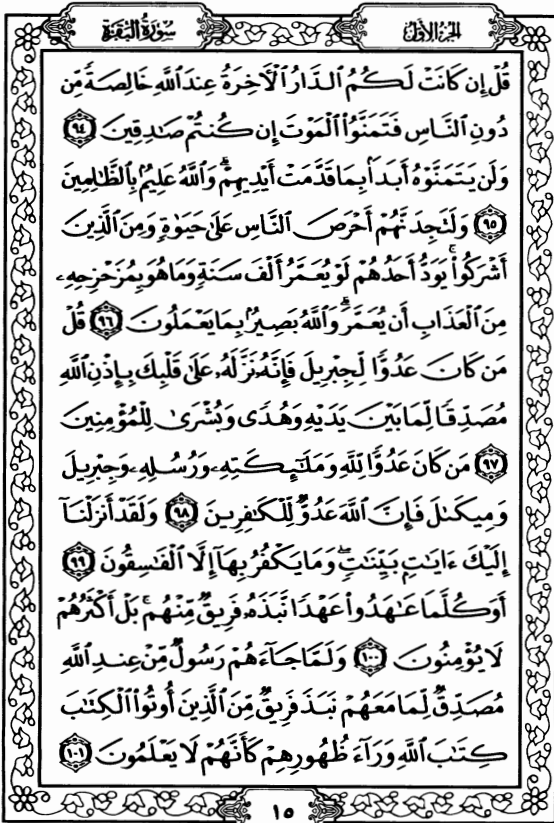 الجزء الأول
سورة البقرة
قُلْ إِن كَانَتْ لَكُمُ الدَّارُ الْآخِرَةُ عِندَ اللَّهِ خَالِصَةً مِّن
دُونِ النَّاسِ فَتَمَنَّوُا الْمَوْتَ إِن كُنتُمْ صَادِقِينَ ٩٤
وَلَن يَتَمَنَّوْهُ أَبَدًا بِمَا قَدَّمَتْ أَيْدِيهِمْ ۗ وَاللَّهُ عَلِيمٌ بِالظَّالِمِينَ
٩٥ وَلَتَجِدَنَّهُمْ أَحْرَصَ النَّاسِ عَلَىٰ حَيَوٰةٍ وَمِنَ الَّذِينَ
أَشْرَكُوا ۚ يَوَدُّ أَحَدُهُمْ لَوْ يُعَمَّرُ أَلْفَ سَنَةٍ وَمَا هُوَ بِمُزَحْزِحِهِۦ
مِنَ الْعَذَابِ أَن يُعَمَّرَ ۗ وَاللَّهُ بَصِيرٌ بِمَا يَعْمَلُونَ ٩٦ قُلْ
مَن كَانَ عَدُوًّا لِّجِبْرِيلَ فَإِنَّهُۥ نَزَّلَهُۥ عَلَىٰ قَلْبِكَ بِإِذْنِ اللَّهِ
مُصَدِّقًا لِّمَا بَيْنَ يَدَيْهِ وَهُدًى وَبُشْرَىٰ لِلْمُؤْمِنِينَ
٩٧ مَن كَانَ عَدُوًّا لِّلَّهِ وَمَلَٰٓئِكَتِهِۦ وَرُسُلِهِۦ وَجِبْرِيلَ
وَمِيكَىٰلَ فَإِنَّ اللَّهَ عَدُوٌّ لِّلْكَٰفِرِينَ ٩٨ وَلَقَدْ أَنزَلْنَآ
إِلَيْكَ ءَايَٰتٍ بَيِّنَٰتٍ ۖ وَمَا يَكْفُرُ بِهَآ إِلَّا الْفَٰسِقُونَ ٩٩
أَوَكُلَّمَا عَٰهَدُوا عَهْدًا نَّبَذَهُۥ فَرِيقٌ مِّنْهُم ۚ بَلْ أَكْثَرُهُمْ
لَا يُؤْمِنُونَ ١٠٠ وَلَمَّا جَآءَهُمْ رَسُولٌ مِّنْ عِندِ اللَّهِ
مُصَدِّقٌ لِّمَا مَعَهُمْ نَبَذَ فَرِيقٌ مِّنَ الَّذِينَ أُوتُوا الْكِتَٰبَ
كِتَٰبَ اللَّهِ وَرَآءَ ظُهُورِهِمْ كَأَنَّهُمْ لَا يَعْلَمُونَ ١٠١
١٥